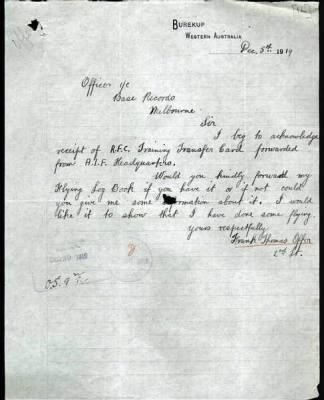 BUREKUP
WESTERN AUSTRALIA
Dec. 5th. 1919
Officer i/c
Base Records
Melbourne.
Sir
I beg to acknowledge
receipt of R.F.C. Training Transfer Card forwarded
from A.I.F. Headquarters.
Would you kindly forward my
Flying Log Book if you have it or if not could
you give me some information about it. I would
like it to show that I have done some flying.
Yours respectfully
Frank Thomas Offer
2nd Lt.